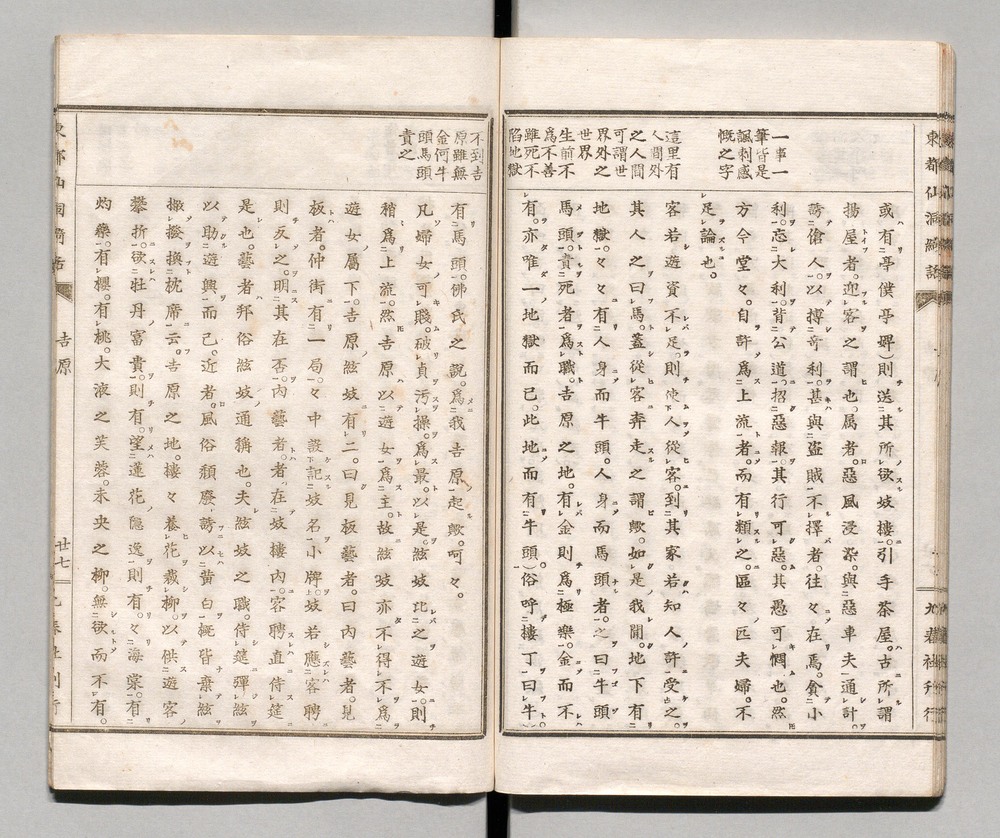 東都仙洞綺話
九春社刊行
一事一
筆皆是
諷刺感
慨之字
這里有
人間外
之人間
可謂世
界外之
世界
生前不
爲不善
雖死不
陷地獄
或有亭僕亭婢)則送其所欲妓樓。引手茶屋。古所謂
揚屋者。迎客之謂也。属者。惡風浸染。與惡車夫通計。
誇傖人。以搏奇利。甚與盜賊不擇者。往々在焉。貪小
利。忘大利。背公道。招惡報。其行可惡。其愚可憫也。然
方今堂々。自許爲上流者。而有類之。區々匹夫婦。不
足論也。
客若遊資不足。則使人從客。到其家若知人許受之。
其人之曰馬。蓋從客奔走之謂歟。如是我聞。地下有
地獄。々々有人身而牛頭。人身而馬頭者。之曰牛頭
馬頭。責死者爲職。吉原之地。有金則爲極樂。金而不
有。亦唯一地獄而已。此地而有牛頭)俗呼樓丁曰牛)
不到吉
原雖無
金何牛
頭馬頭
貴之
有馬頭。佛氏之說。爲我吉原起歟。呵々。
凡婦女可賤。破貞汚操。爲最。以是。絃妓比之遊女。則
稍爲上流。然吉原以遊女爲主。故絃妓亦不得不爲
遊女屬下。吉原絃妓有二。曰見板藝者。曰內藝者。見
板者。仲街有一局。々中設記妓名小牌。妓若應客聘
則反之。明其在否。內藝者。者在妓樓內。客聘直侍筵
是也。藝者邦俗絃妓通稱也。夫絃妓之職。侍筵彈絃
以助遊興而已。近者。風俗頽廢。誘以黄白。輒皆棄絃
撒撥。換枕席云。吉原之地。樓々養花栽柳。以供遊客
攀折。欲牡丹富貴。則有。望蓮花隱逸則有。々海棠。有
灼藥。有櫻。有桃。大液之芙蓉。未央之柳。無欲而不有。
吉原
廿七